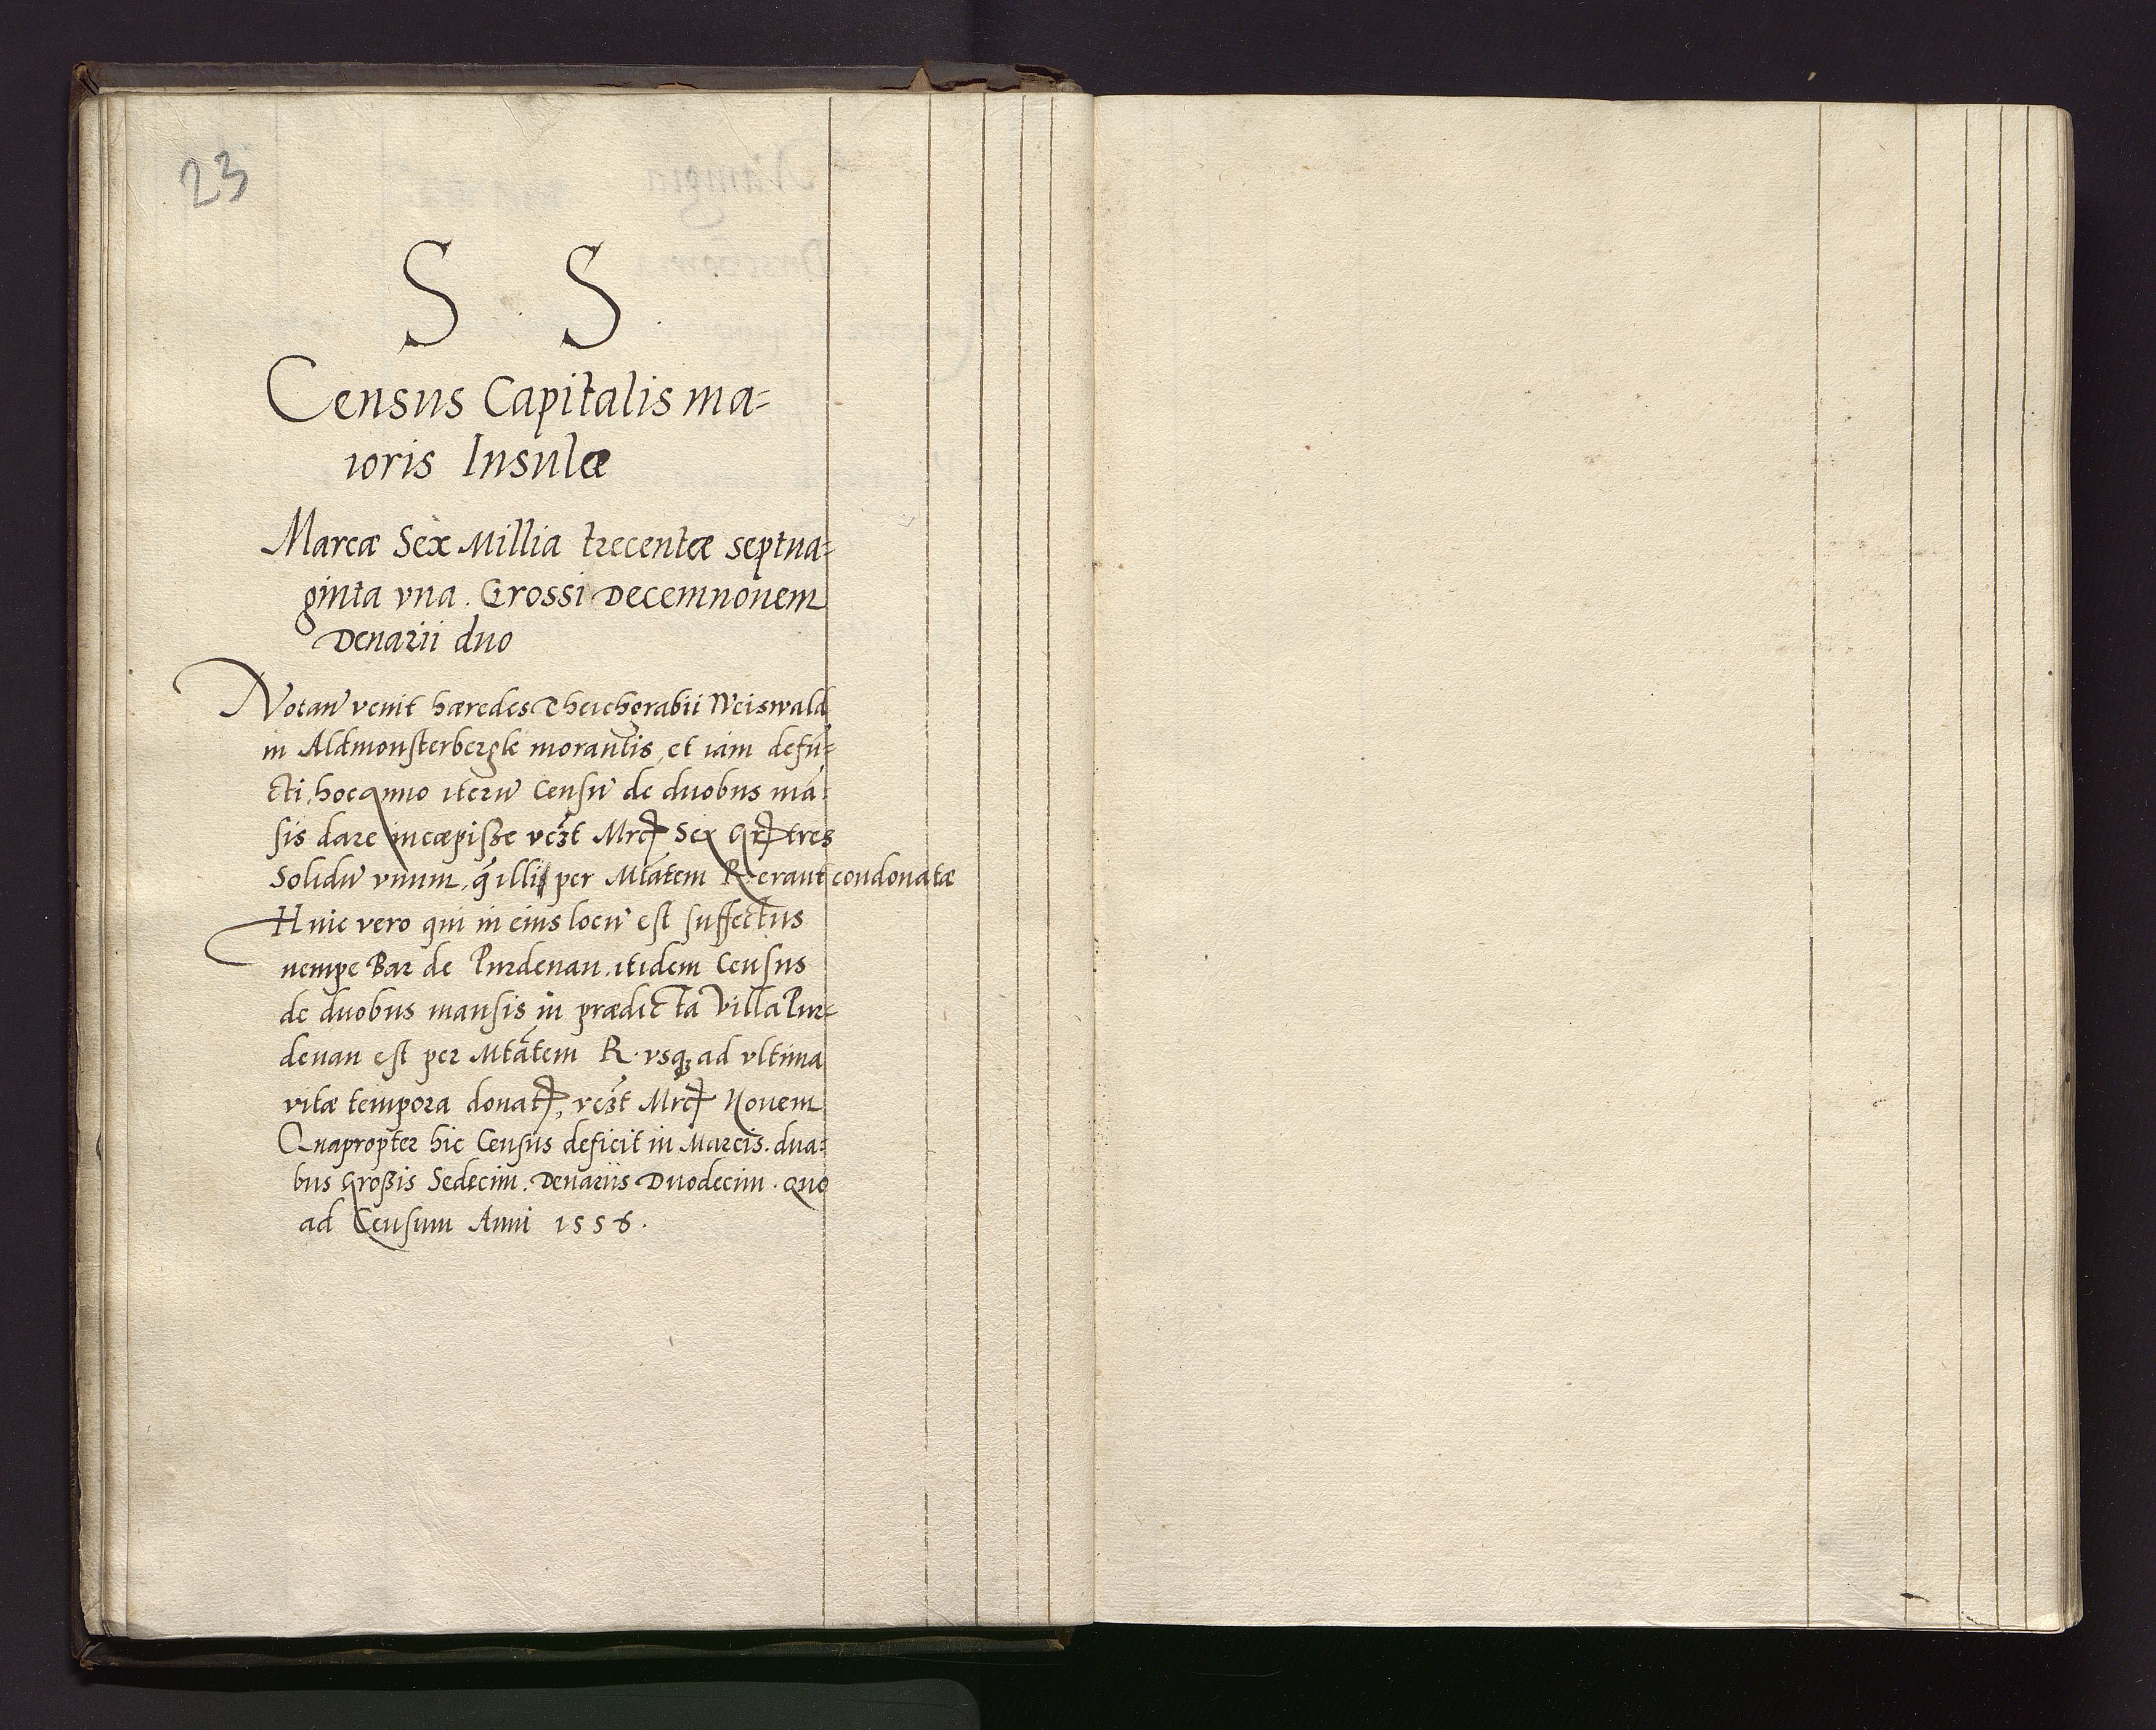 23
S S
Census Capitalis ma=
ioris Insulæ
Marcæ Sex Millia trecentæ septua=
ginta vna. Grossi Decemnouem
Denarii duo
Notan̄ venit hæredes Weiswald
in Aldmonsterbergk morantis, et iam defū=
cti, hoc anno iterū Censū de duobus mā=
sis dare incæpisse vczt Mrc Sex Gr tres
Solidū vnum, q̄ illis per Mtātem R. erant condonatæ
Huic vero qui in eius locū est suffectus
nempe Bar de Purdenau, itidem Census
de duobus mansis in prædicta Villa Pur=
denau est per Mtātem R. vsq3 ad vltima
vitæ tempora donat, vczt Mrc Nouem
Quapropter hic Census deficit in Marcis. dua=
bus Großis Sedecim. Denariis Duodecim. Quo
ad Censum Anni 1556.